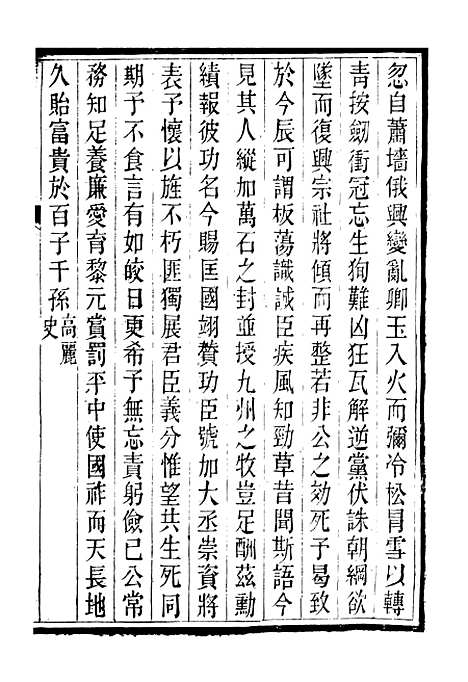 忽自蕭墻俄興變亂卿玉入火而彌冷松冐雪以轉
青按劒衝冠忘生狥難凶狂瓦解逆黨伏誅朝綱欲
墜而復興宗社將傾而再整若非公之効死予曷致
於今辰可謂板蕩識誠臣疾風知勁草昔聞斯語今
見其人縱加萬石之封並授九州之牧豈足酬茲勳
績報彼功名今賜匡國翊贊功臣號加大丞崇資將
表予懷以旌不朽匪獨展君臣義分惟望共生死同
期予不食言有如皎日更希子無忘責躬儉已公常
務知足養廉愛育黎元賞罰平中使國祚而天長地
久貽富貴於百子千孫高麗
史